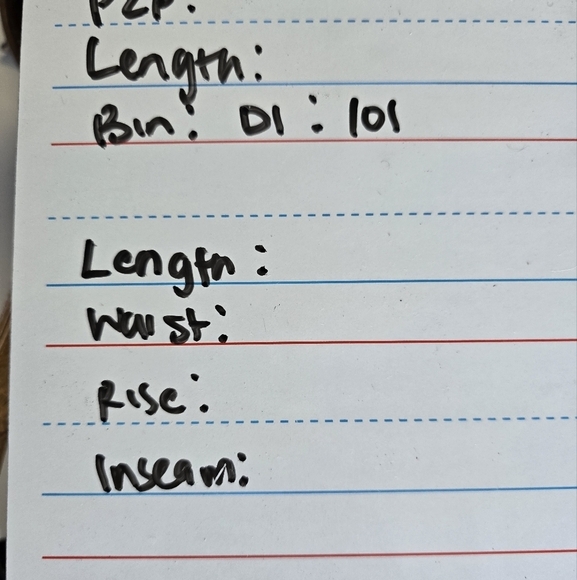 P2P:
Length:
Bin: D1: 101
Length:
Waist:
Rise:
Inseam: